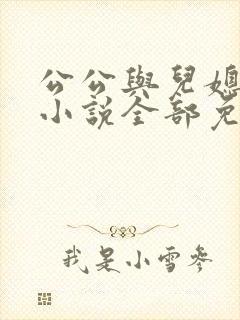 公公與兒媳
小說全部免
我是小雪參